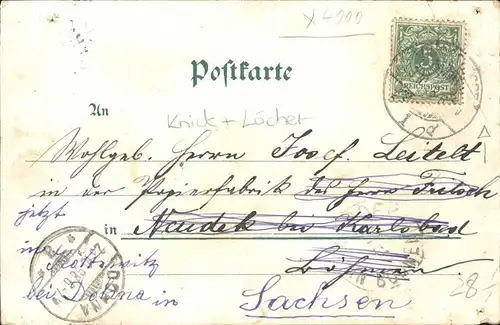 x 4000
5
REICHSPOST
Postkarte
An
Knick + Löcher
Wohlgeb. Herrn Josef Leitelt
in der Papierfabrik des Herrn Fritsch
jetzt
in Neudek bei Karlsbad
in
Böhmen
bei Dohna in Sachsen
DOHNA
28,-